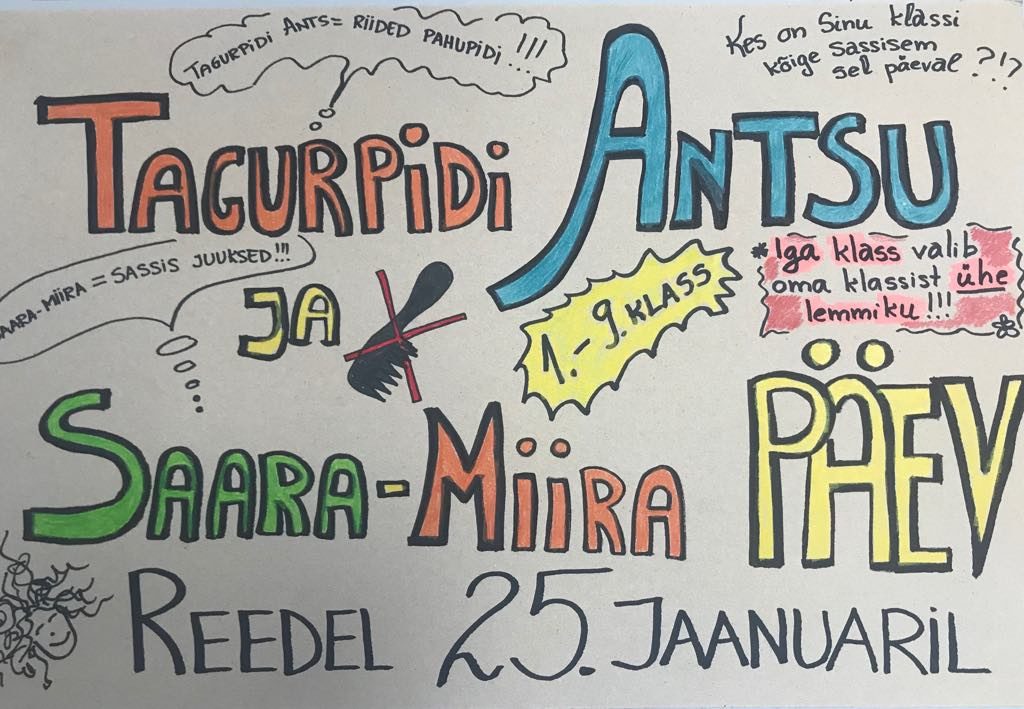 TAGURPIDI ANTS = RIIDED PAHUPIDI !!!
Kes on Sinu klassi
kõige sassisem
sel päeval ?!?
TAGURPIDI ANTSU
SAARA-MIIRA = SASSIS JUUKSED!!!
JA
1.-9. KLASS
* Iga klass valib
oma klassist ühe
lemmiku!!!
SAARA-MIIRA PÄEV
REEDEL 25. JAANUARIL